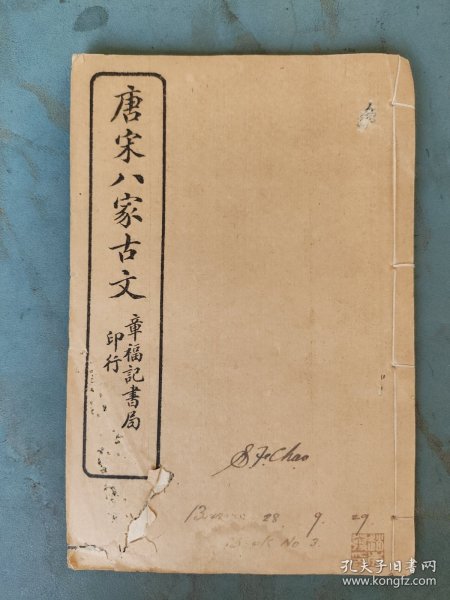 唐宋八家古文
章福記書局
印行
S. F. Chao
28. 9. 29.
Book No 3.
孔夫子旧书网
www.kongfz.com